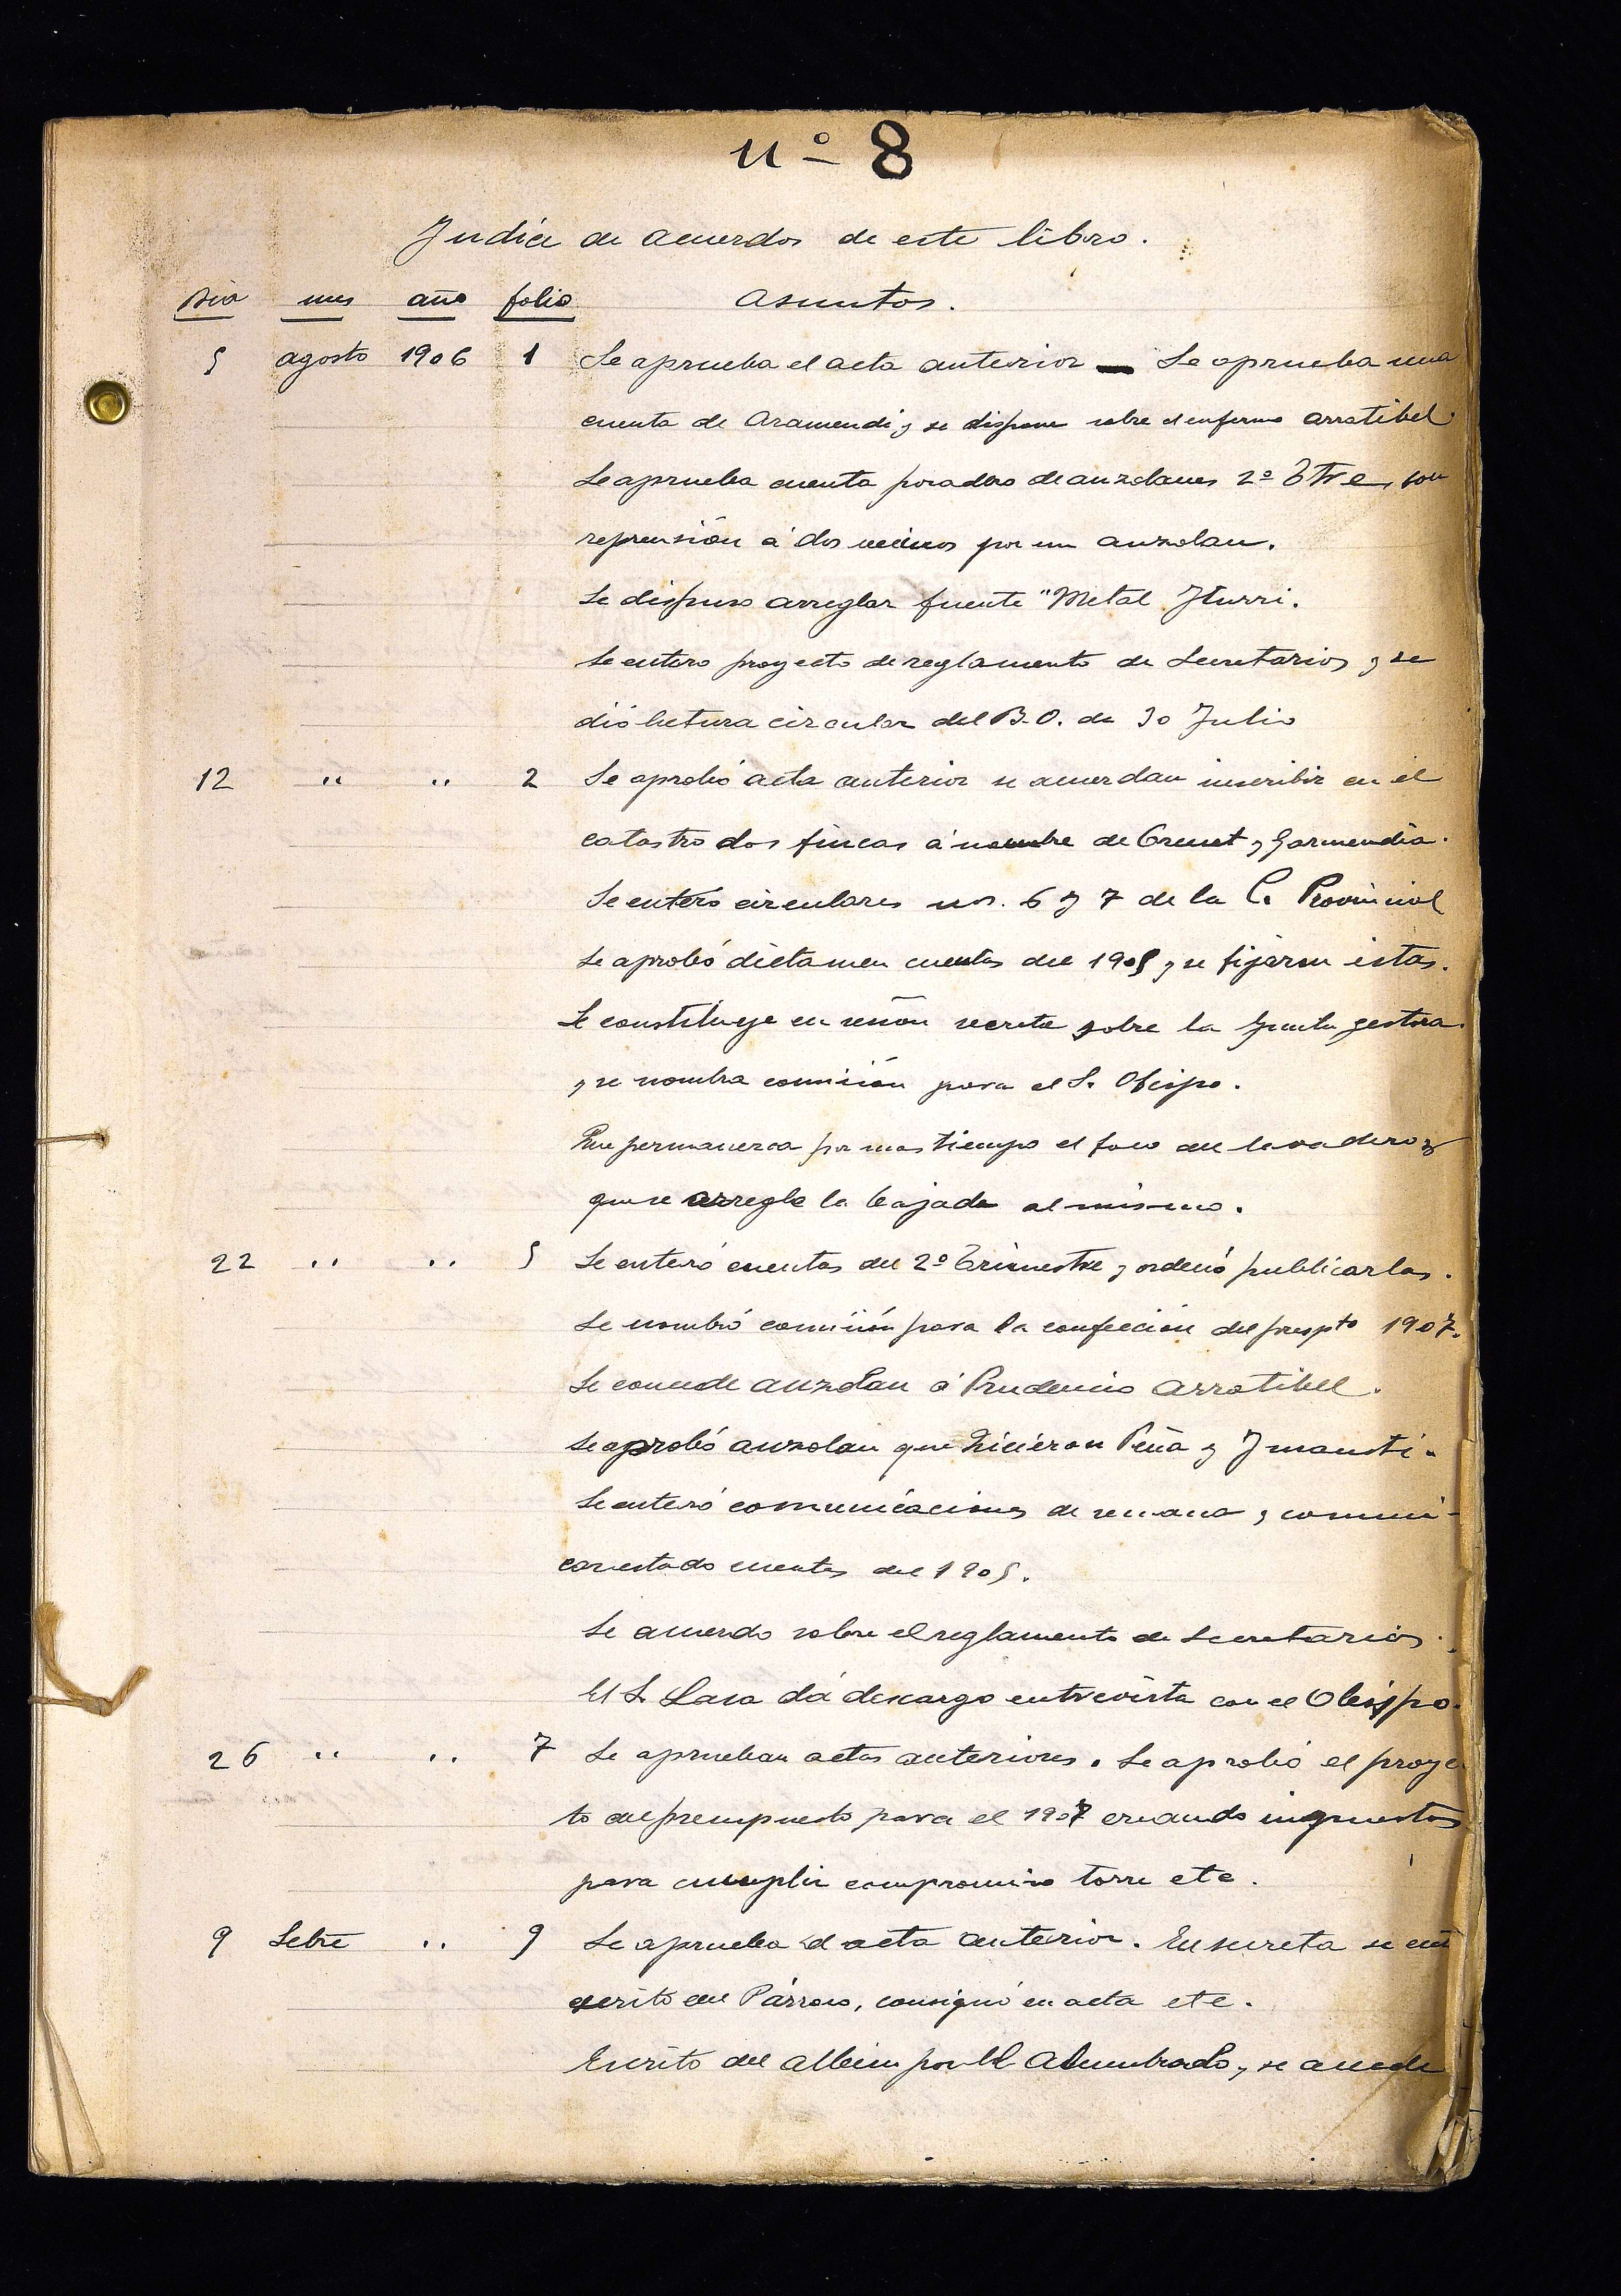 nº 8
Indice de acuerdos de este libro.
Dia mes año folio Asuntos.
5 agosto 1906 1 Se aprueba el acta anterior — Se aprueba una
cuenta de Aramendi y se dispone sobre el enfermo Arratibel
Se aprueba cuenta de auzolanes 2º Tre,
reprensión á dos vecinos por un auzolan.
Se dispuso arreglar fuente "Metal Iturri.
Se entero proyecto de reglamento de Secretarios y se
dió lectura circular del B.O. de 30 Julio
12 " " 2 Se aprobó acta anterior se acuerdan inscribir en el
catastro dos fincas á nombre de y Garmendia.
Se enteró circulares nos. 6 y 7 de la C. Provincial
Se aprobó dictamen cuentas del 1905 y se fijaron éstas.
Se constituye en sesión secreta sobre la Junta gestora
y se nombra comisión para el S. Obispo.
Que permanezca por mas tiempo el foco del lavadero y
que se arregle la bajada al mismo.
22 " " 5 Se enteró cuentas del 2º Trimestre y ordenó publicarlas.
Se nombró comisión para la confección del presupto 1907.
Se concede auzolan á Prudencio Arratibel.
Se aprobó auzolan que hicieron Peña y Imausti.
Se enteró comunicaciones de y comuni-
can estado cuentas del 1905.
Se acuerdo sobre el reglamento de Secretarios.
El S. Lasa dá descargo entrevista con el Obispo.
26 " " 7 Se aprueban actas anteriores. Se aprobó el proyec
to del presupuesto para el 1907 creando impuestos
para cumplir compromiso torre etc.
9 Sebre " 9 Se aprueba el acta anterior. En secreta se
escrito del Párroco, consignó en acta etc.
Escrito del por el Alumbrado, y se accede